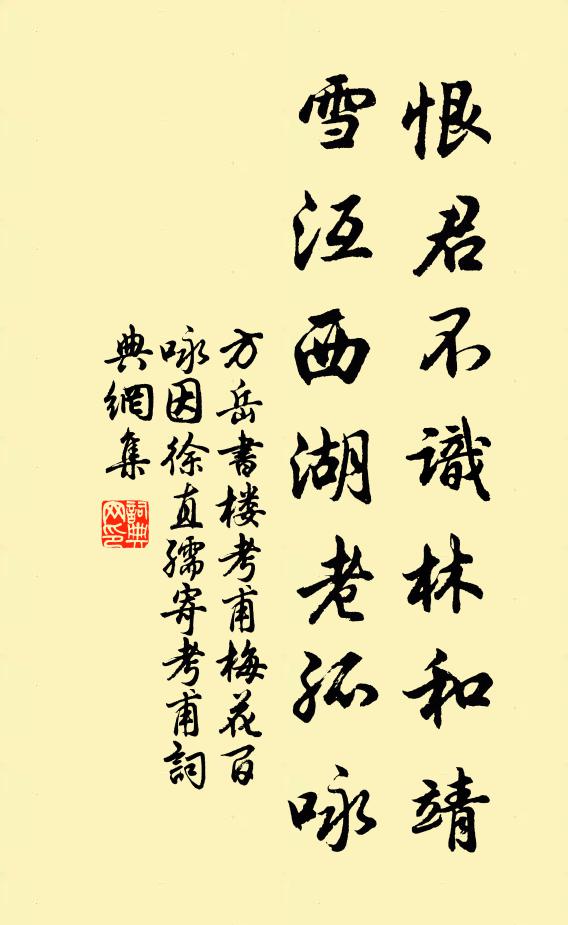 恨君不識林和靖
雪沍西湖老孤咏
方岳書楼考甫梅花百
咏因徐直孺寄考甫詞
典網集
詞典
网印